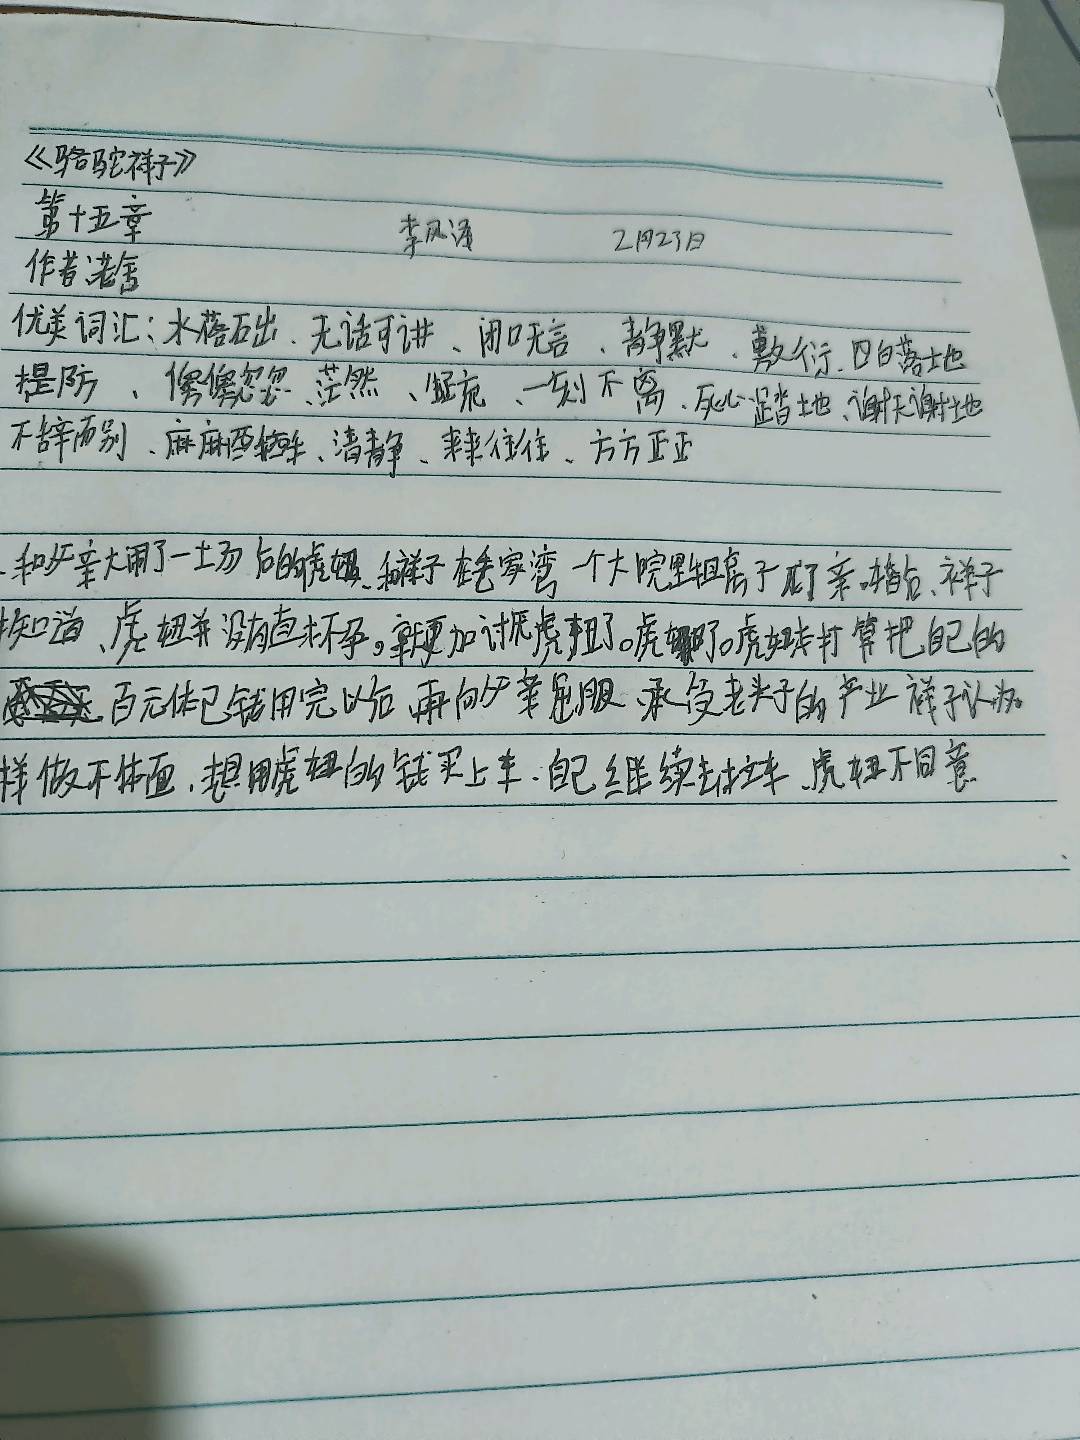 《骆驼祥子》
第十五章 李风泽 2月23日
作者:老舍
优美词汇:水落石出、无话可讲、闭口无言、静默、敷衍、四白落地
提防、傻傻忽忽、茫然、一刻不离、死心踏地、谢天谢地
不辞而别、麻麻酥酥、清静、来来往往、方方正正
和父亲大闹了一场后的虎妞、和祥子在毛家湾一个大院里租房子成了亲。婚后、祥子
知道、虎妞并没有真怀孕。就更加讨厌虎妞了。虎妞打算把自己的
百元体己钱用完以后、再向父亲屈服、承受老头子的产业 祥子认为
样做不体面、想用虎妞的钱买上车、自己继续去拉车、虎妞不同意